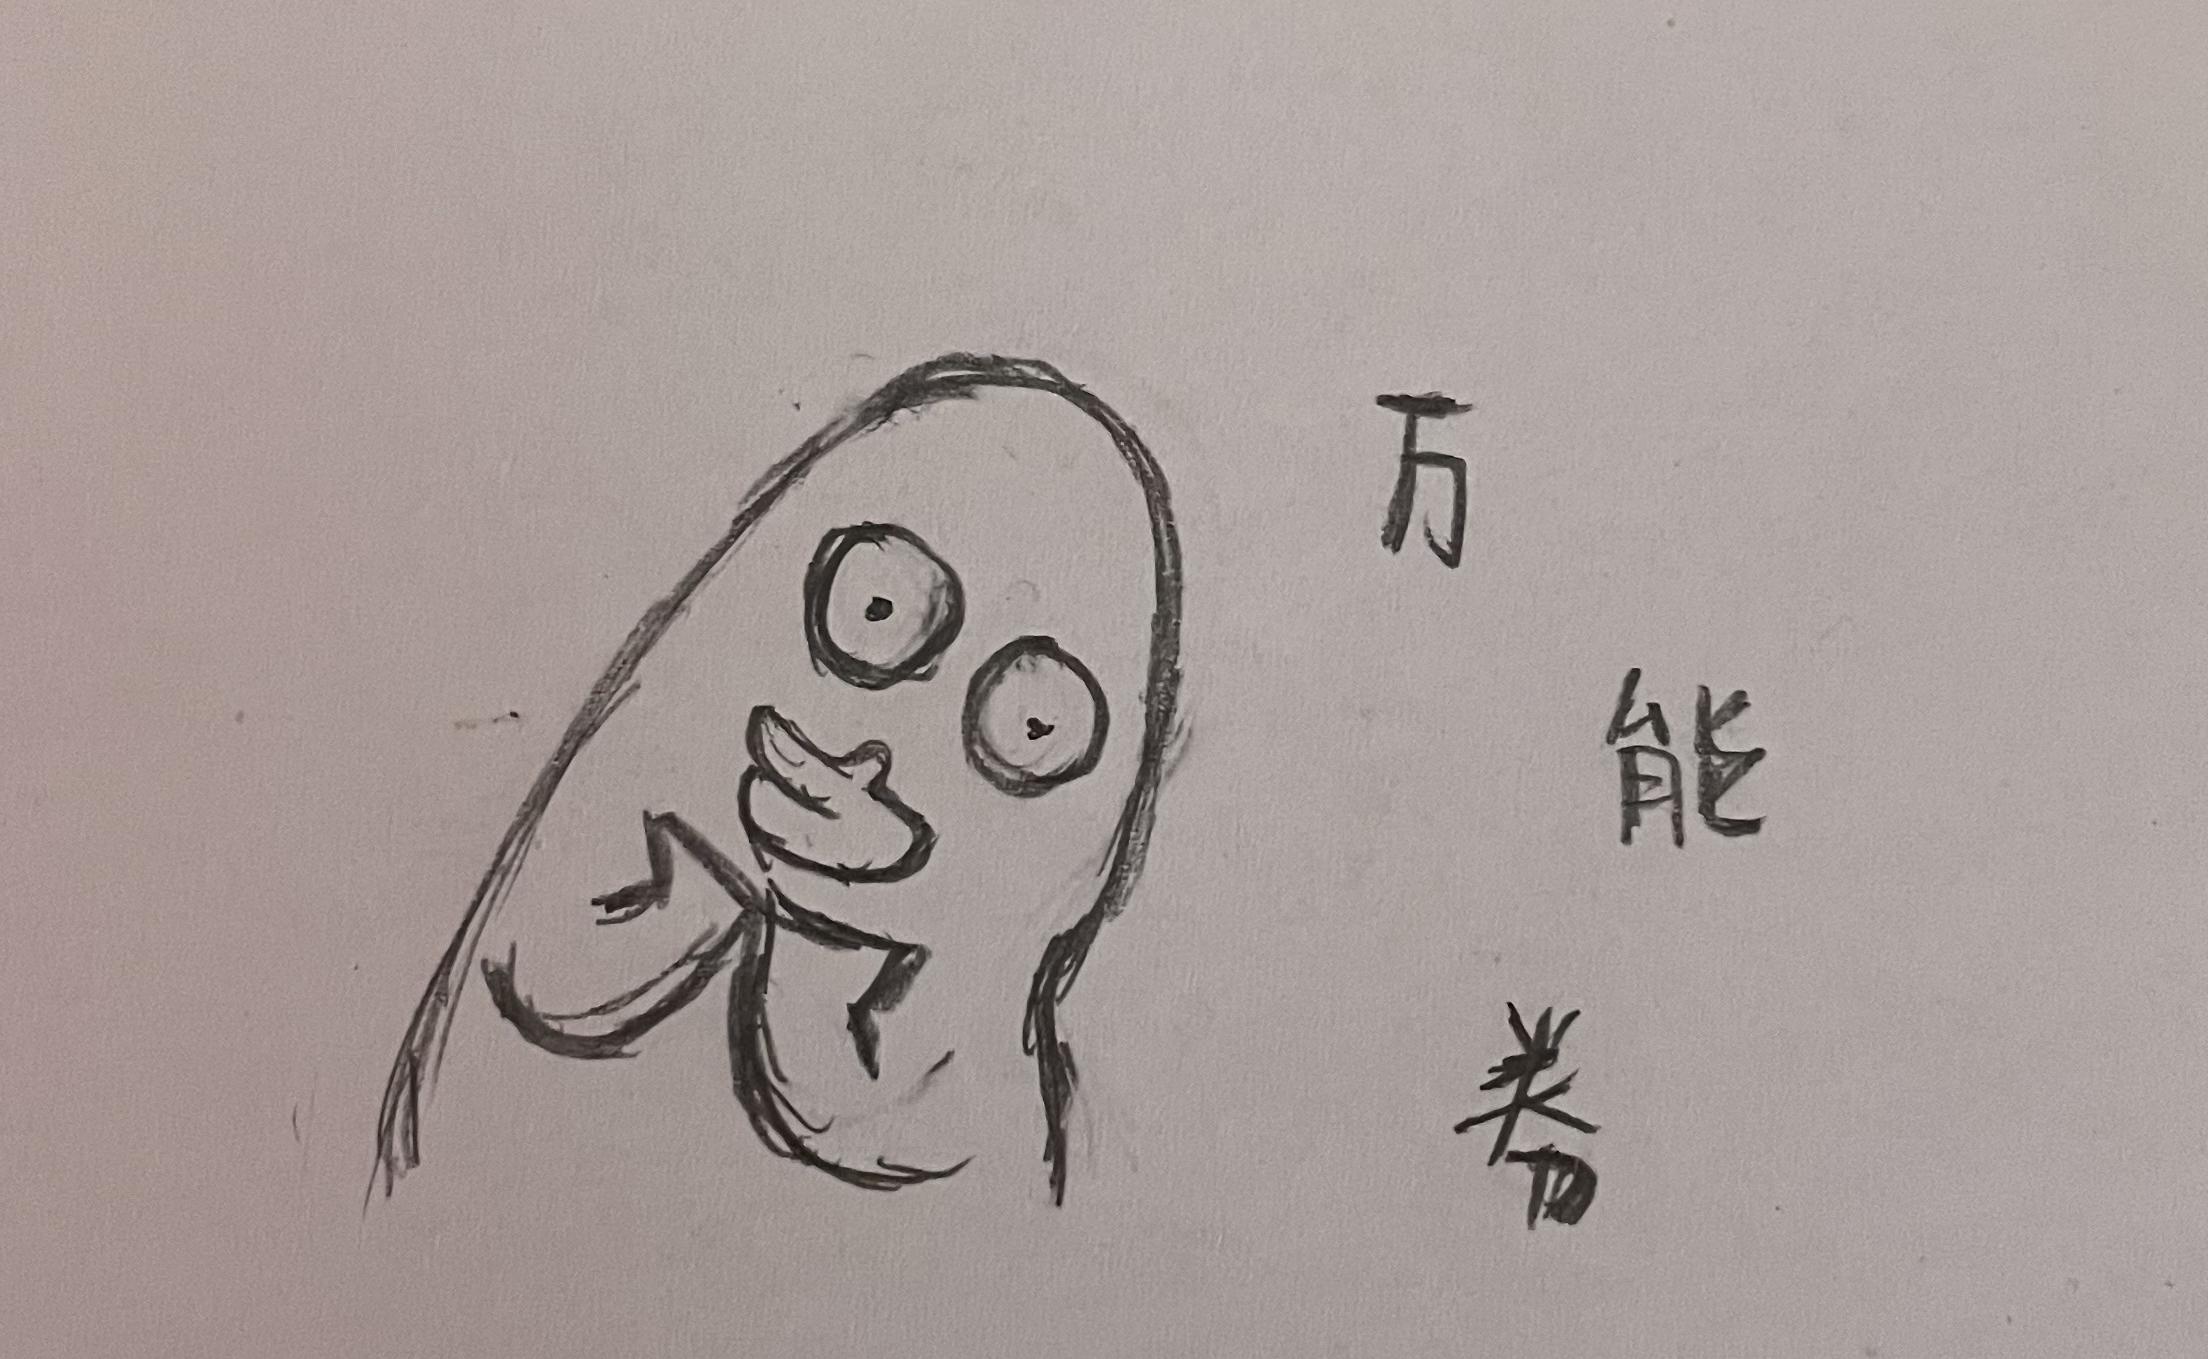 万能券